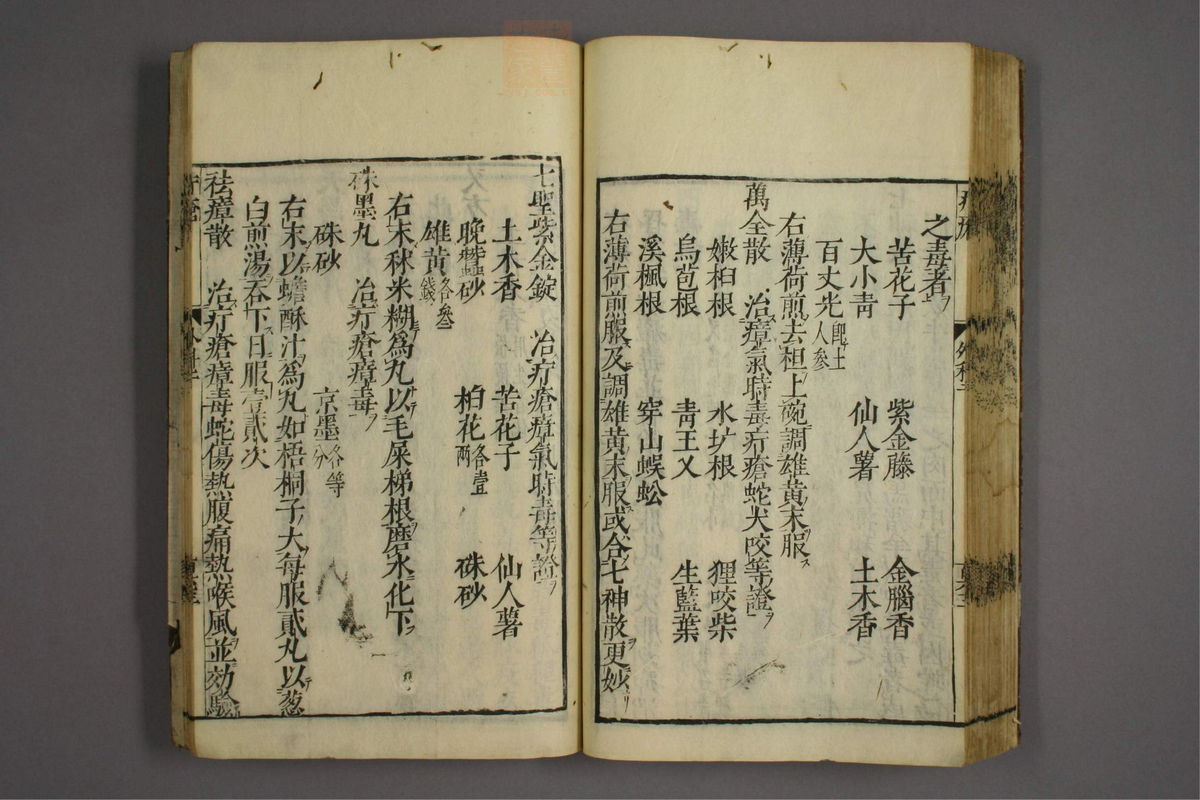 之毒著ヲ
苦花子 紫金藤 金腦香
大小青 仙人薯 土木香
百丈光 卽土人参
右薄荷煎去柤上碗調雄黃末服ス
萬全散 治瘴氣時毒疔瘡蛇犬咬等證ヲ
嫩桕根 水圹根 狸咬柴
烏苞根 青王乂 生藍葉
溪楓根 穿山蜈蚣
右薄荷煎服及調雄黃末服或合七神散更妙
七聖紫金錠 治疔瘡瘴氣時毒等證ヲ
土木香 苦花子 仙人薯
晚蠶砂 柏花各壹兩 硃砂
雄黃各叄錢
右末秫米糊爲丸以毛屎梯根磨水化下
硃墨丸 治疔瘡瘴毒ヲ
硃砂 京墨各等分
右末以蟾酥汁爲丸如梧桐子大每服貳丸以葱
白煎湯吞下日服壹貳次
祛瘴散 治疔瘡瘴毒蛇傷熱腹痛熱喉風並効驗